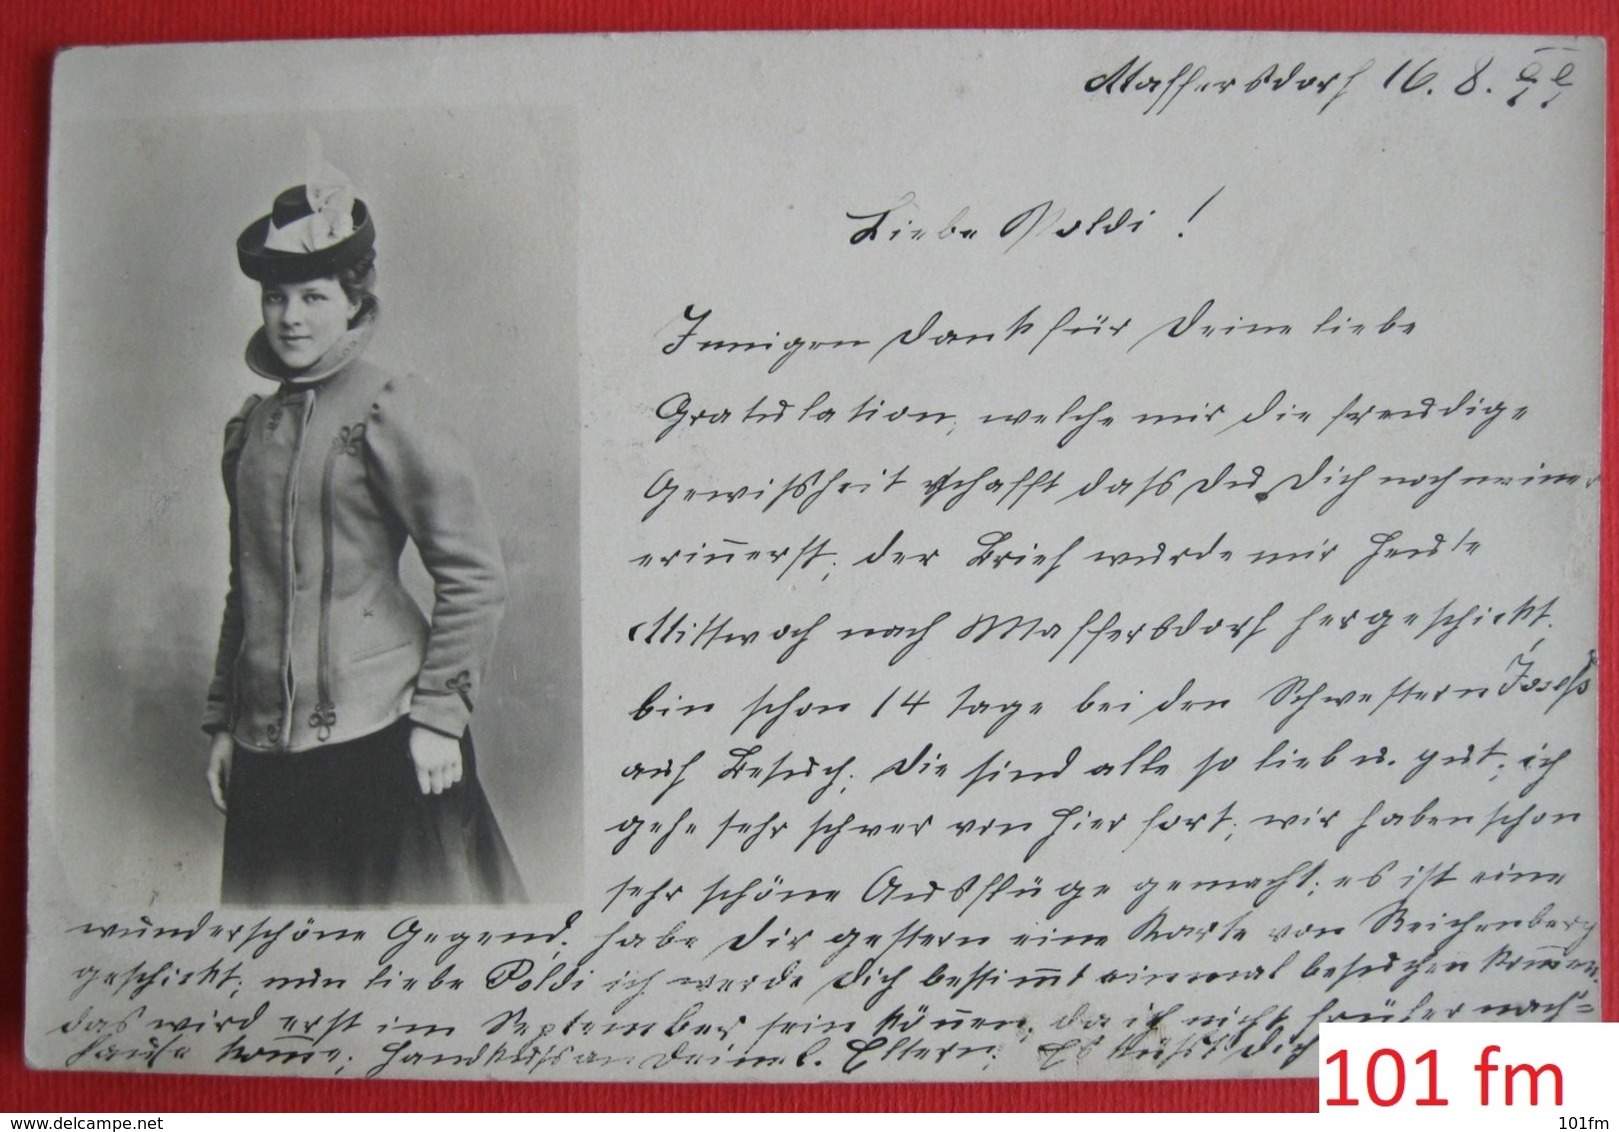 Maffersdorf 16. 8. 99
Liebe Poldi!
Innigen Dank für Deine liebe
Gratulation, welche mir die freudige
Gewißheit schafft dass Du Dich noch meiner
erin̄erst; der Brief wurde mir heute
Mittwoch nach Maffersdorf hergeschickt,
bin schon 14 tage bei den Schwestern Josefs
auf Besuch; die sind alle so lieb u. gut; ich
gehe sehr schwer von hier fort; wir haben schon
sehr schöne Ausflüge gemacht; es ist eine
wunderschöne Gegend. habe Dir gestern eine Karte von Reichenberg
geschickt; nun liebe Poldi ich werde Dich bestim̄t einmal besuchen kom̄en.
das wird erst im September sein kön̄en, da ich nicht früher nach=
hause kom̄e; Handkuß an Deine l. Eltern; Es küßt Dich
101 fm
www.delcampe.net
101fm